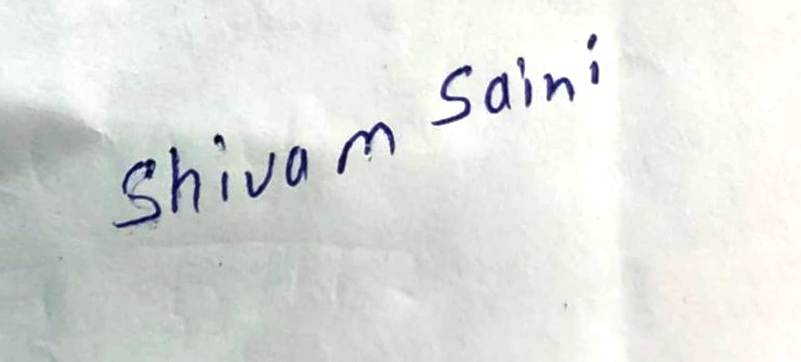 Shivam Saini